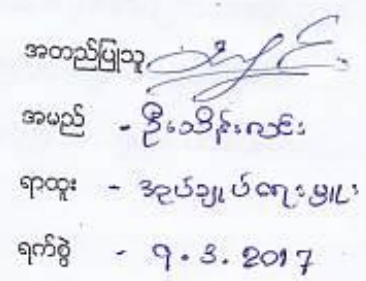 အတည်ပြုသူ
အမည် - ဦးသိန်းလင်း
ရာထူး - အုပ်ချုပ်ရေးမှူး
ရက်စွဲ - ၇.3.2017